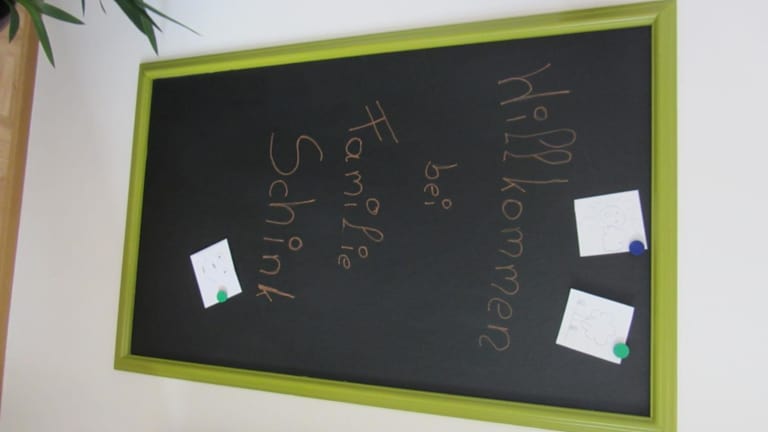 Willkommen
bei
Familie
Schink